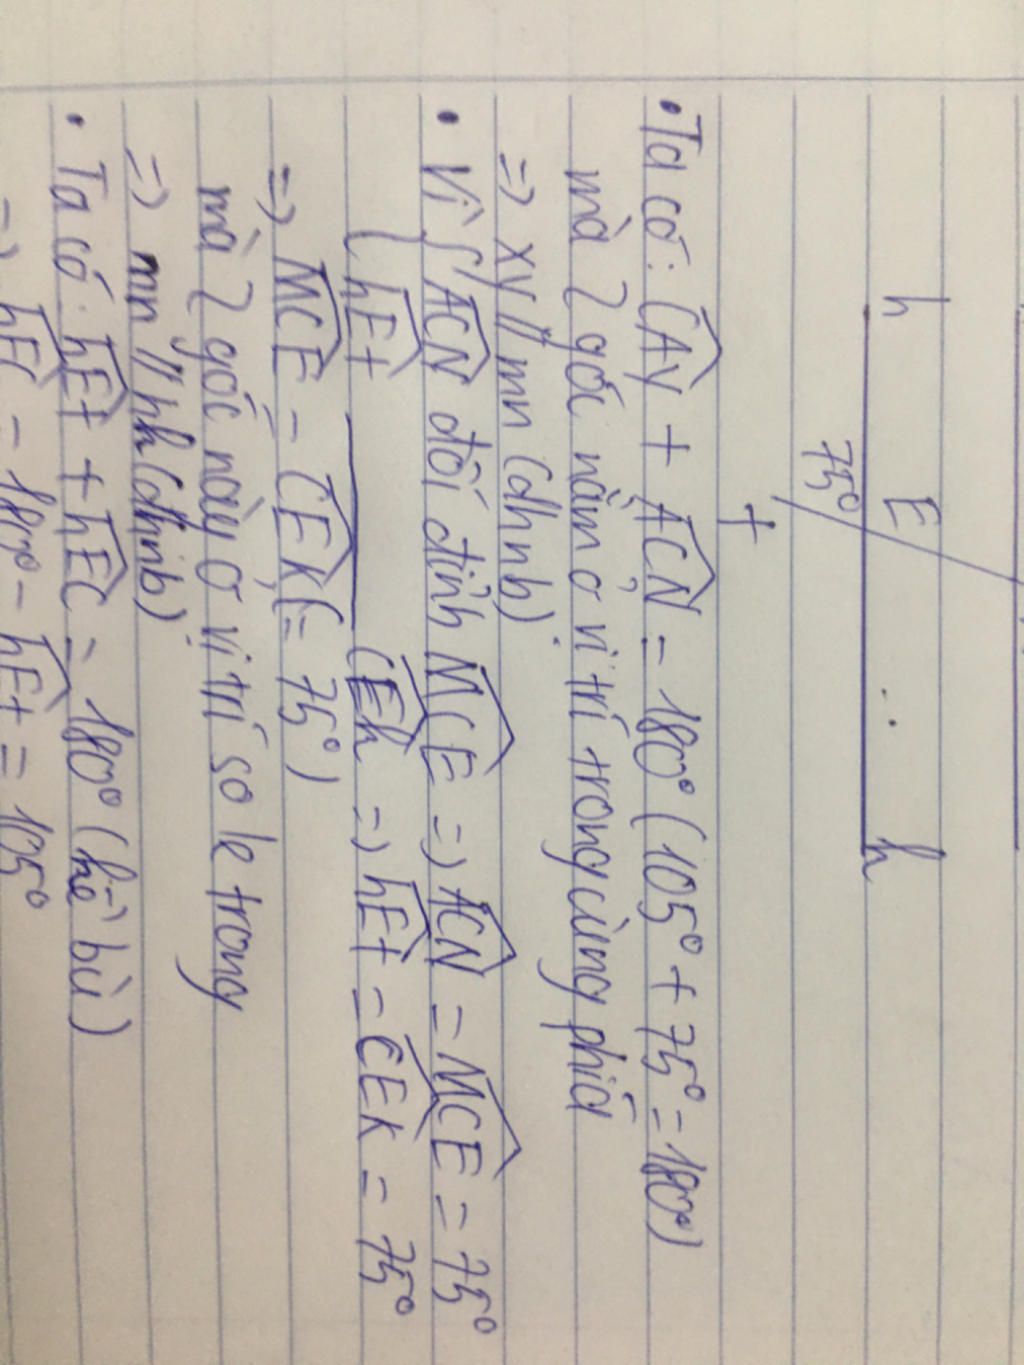 h E .. h
75°
t
• Ta có: CAy + ACN = 180° (105° + 75° = 180°)
mà 2 góc nằm ở vị trí trong cùng phía
=> xy // mn (dhnb)
• Vì { ACN đối đỉnh MCE => ACN = MCE = 75°
hEt CEk => hEt = CEK = 75°
=> MCE = CEK (= 75°)
mà 2 góc này ở vị trí so le trong
=> mn // hk (dhnb)
• Ta có: hEt + hEC = 180° (kề bù)
=> hEC = 180° - hEt = 105°